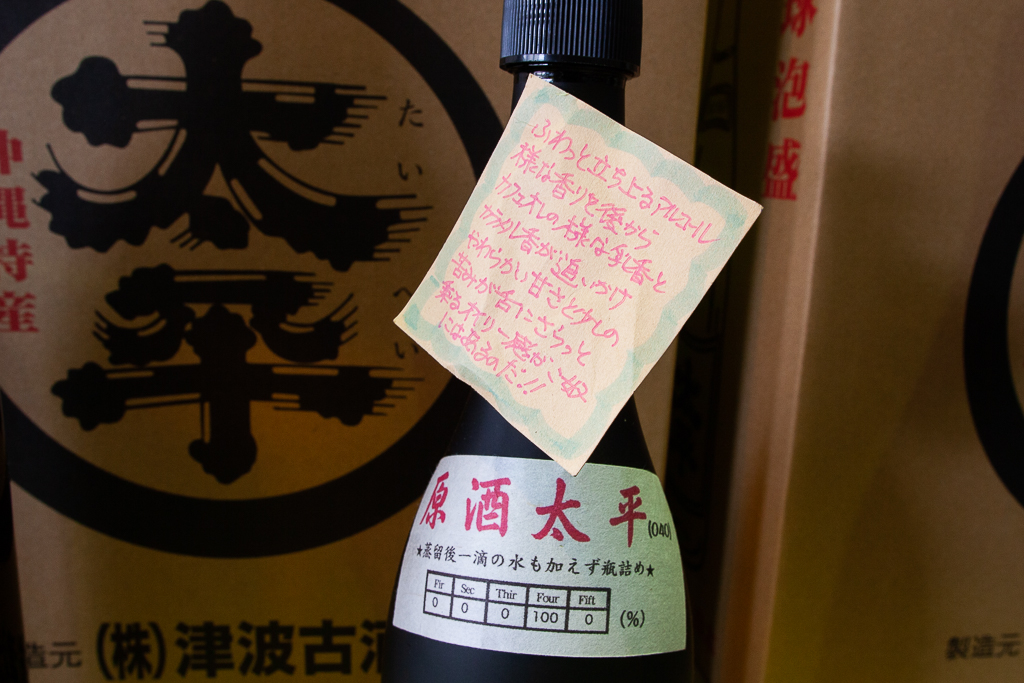 太平
たいへい
沖縄特産
球泡盛
ふわっと立ち上るアルコール
様な香りを後から
カフェオレの様な乳香と
カラメル香が追いかけ
やわらかい甘さと少しの
苦みが舌にさらっと
乗る
にはあるのだ!!
原酒太平(040)
★蒸留後一滴の水も加えず瓶詰め★
Fir Sec Thir Four Fift
0 0 0 100 0 (%)
造元 (株)津波古酒
製造元